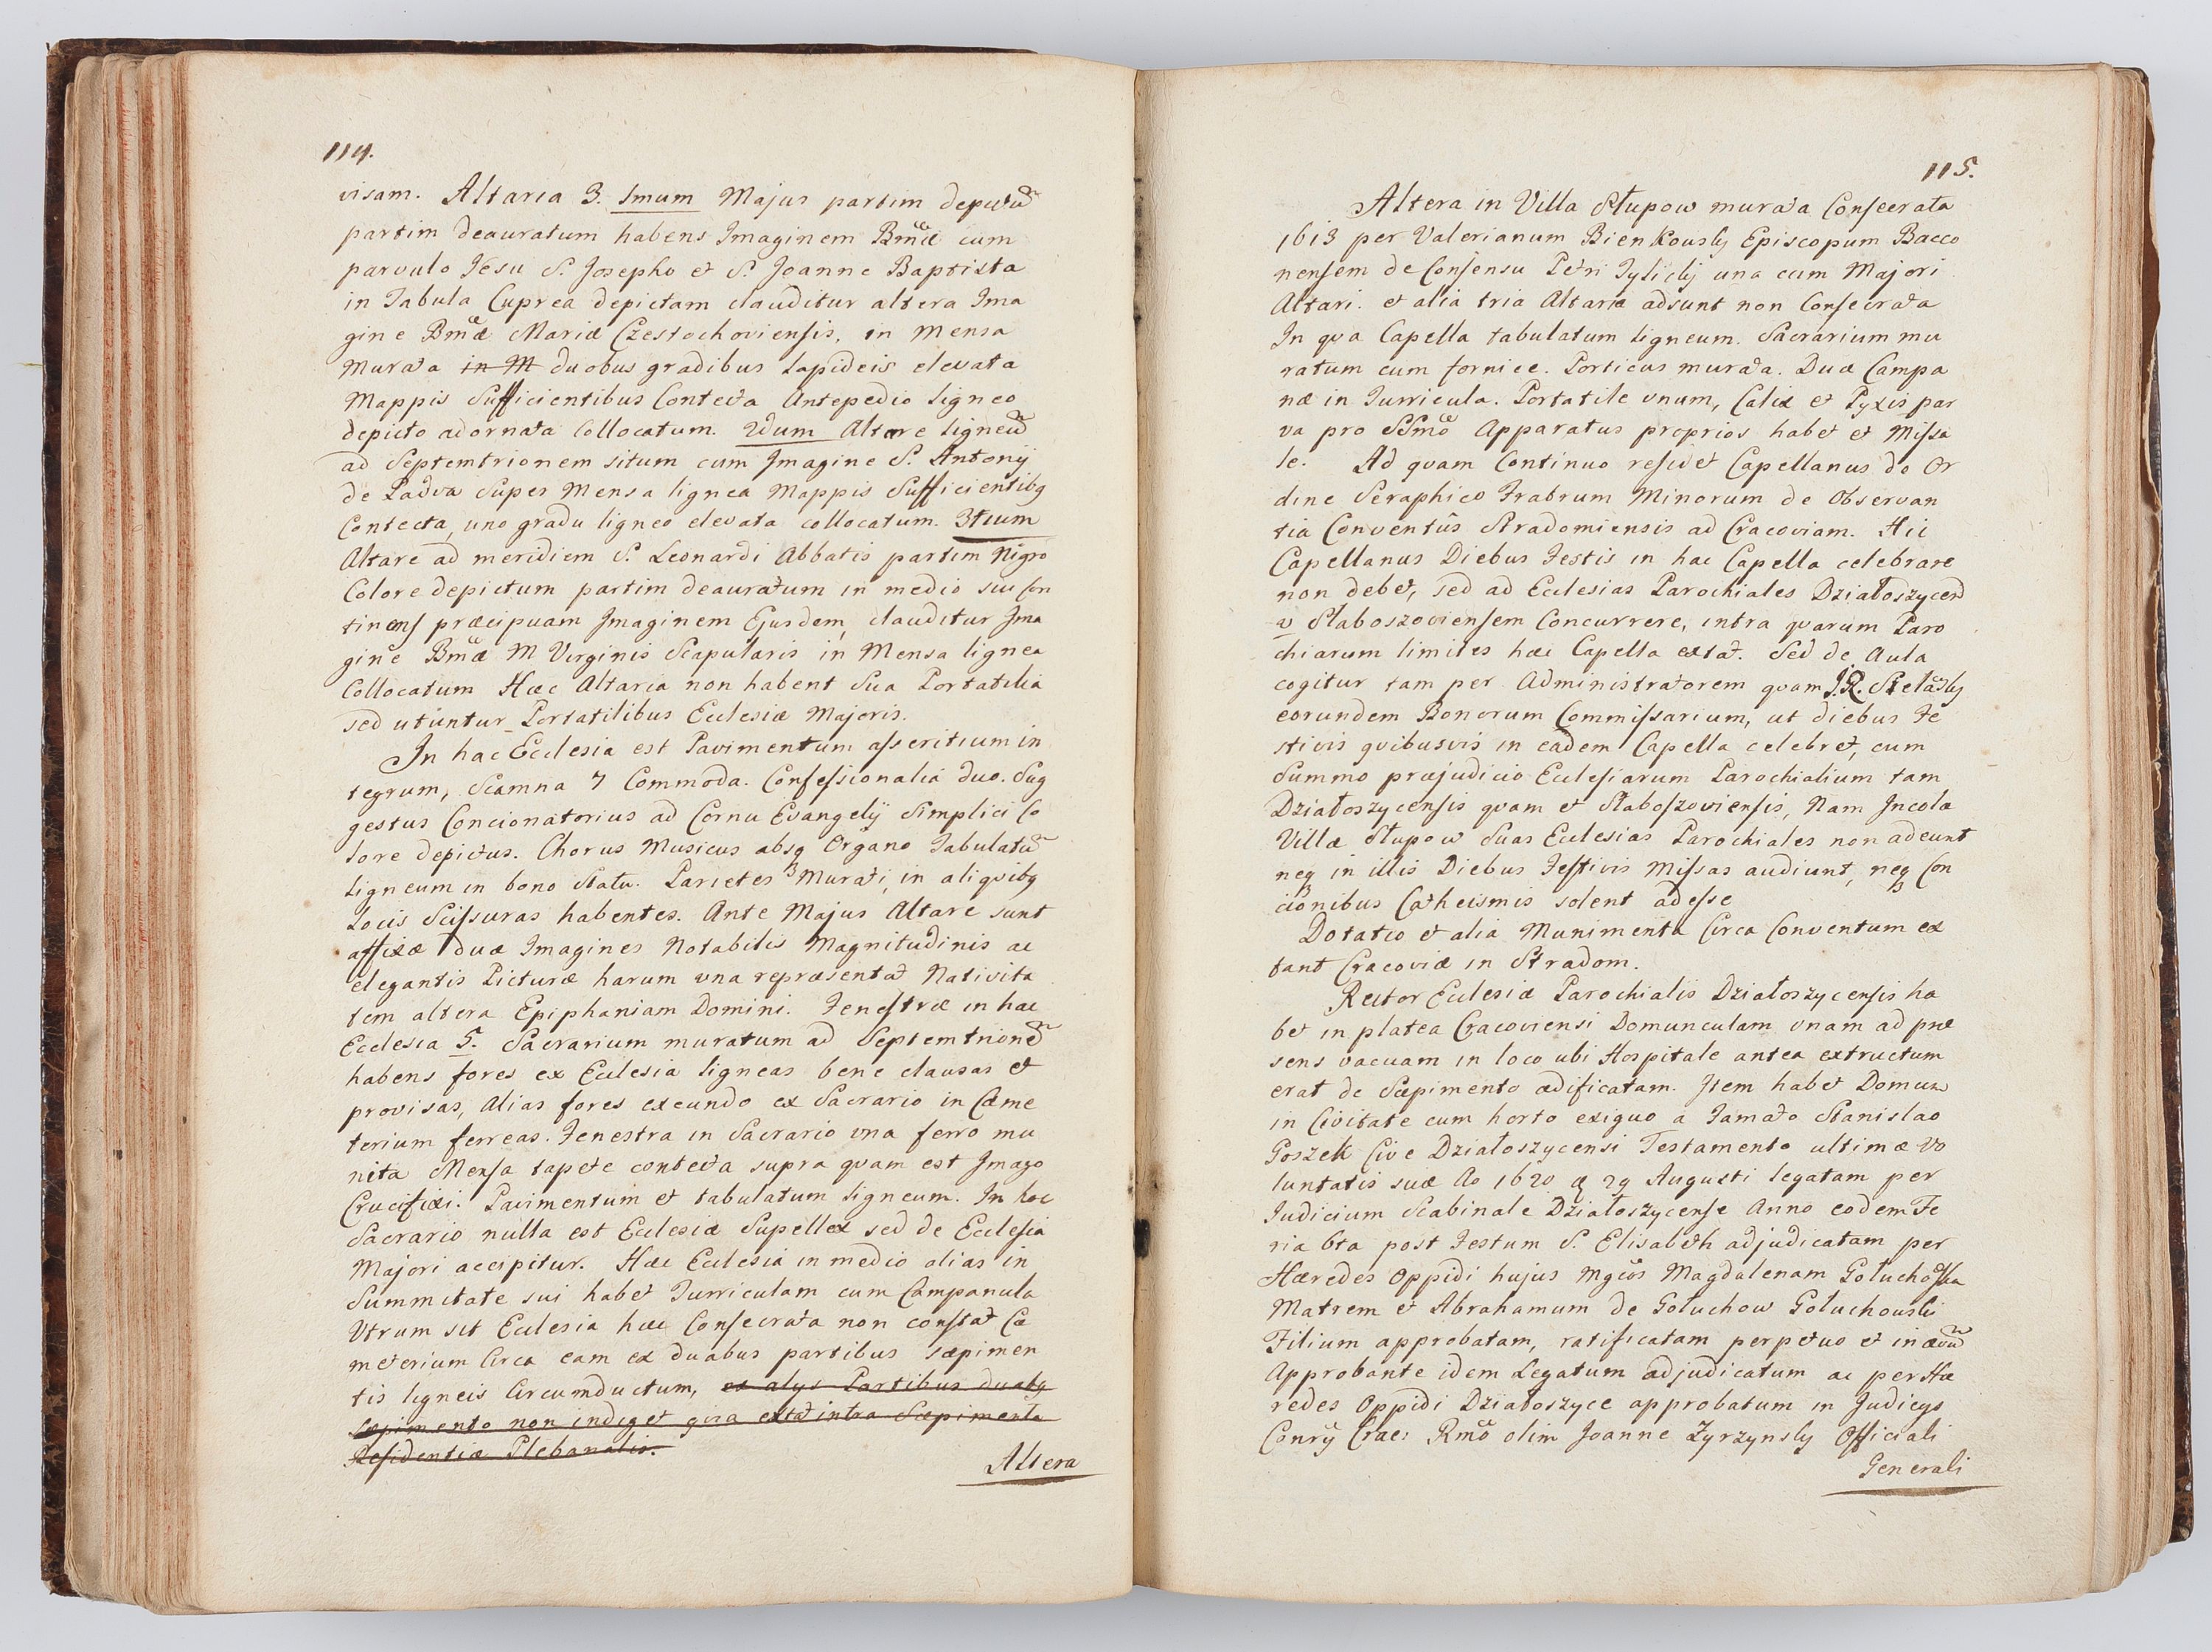 114.
visam. Altaria 3. 1mum Majus partim depictū
partim deauratum habens Imaginem Bmæ cum
parvulo Jesu S. Josepho et S. Joanne Baptista
in Tabula Cuprea depictam clauditur altera Ima
gine Bmæ Mariæ Czestochoviensis, in Mensa
Murata in M duobus gradibus Lapideis elevata
Mappis Sufficientibus Contecta Antepedio ligneo
depicto adornata Collocatum. 2dum Altare ligneū
ad Septemtrionem situm cum Imagine S. Antonij
de Padva super Mensa lignea Mappis Sufficientibq
Contecta, uno gradu ligneo elevata collocatum. 3tium
Altare ad meridiem S. Leonardi Abbatis partim Nigro
Colore depictum partim deauratum in medio sui con
tinens præcipuam Imaginem Ejusdem, clauditur Ima
gine Bmæ M Virginis Scapularis in Mensa lignea
Collocatum Hæc Altaria non habent Sua Portatilia
sed utuntur Portatilibus Ecclesiæ Majoris.
In hac Ecclesia est Pavimentum asseritium in
tegrum, Scamna 7 Commoda. Confessionalia duo. Sug
gestus Concionatorius ad Cornu Evangelij Simplici Co
lore depictus. Chorus Musicus absq Organo Tabulatū
Ligneum in bono Statu. Parietes Murati, in aliqvibq
Locis Scissuras habentes. Ante Majus Altare sunt
affixæ duæ Imagines Notabilis Magnitudinis ac
elegantis Picturæ harum una repræsentat Nativita
tem altera Epiphaniam Domini. Fenestræ in hac
Ecclesia 5. Sacrarium muratum ad Septemtrionē
habens fores ex Ecclesia ligneas bene clausas et
provisas, Alias fores exeundo ex Sacrario in Cæme
terium ferreas. Fenestra in Sacrario una ferro mu
nita Mensa tapete contecta supra qvam est Imago
Crucifixi. Pavimentum et tabulatum ligneum. In hoc
Sacrario nulla est Ecclesiæ Supellex sed de Ecclesia
Majori accipitur. Hæc Ecclesia in medio olias in
Summitate sui habet Turriculam cum Campanula
Utrum sit Ecclesia hæc Consecrata non constat Cæ
meterium Circa eam ex duabus partibus sæpimen
tis ligneis Circumductum, ex alys Partibus duabq
Sæpimento non indiget qvia extat intra Sæpimenta
Residentiæ Plebanalis.
Altera
115.
Altera in Villa Słupow murata Consecrata
1613 per Valerianum Bienkousky Episcopum Bacco
nensem de Consensu Petri Tylicky una cum Majori
Altari. et alia tria Altaria adsunt non Consecrata
In qva Capella tabulatum ligneum. Sacrarium mu
ratum cum fornice. Porticus murata. Duæ Campa
næ in Turricula. Portatile unum, Calix et Pyxis par
va pro SSmo Apparatus proprios habet et Missa
le. Ad qvam Continuo residet Capellanus de Or
dine Seraphico Fratrum Minorum de Observan
tia Conventûs Stradomiensis ad Cracoviam. Hic
Capellanus Diebus Festis in hac Capella celebrare
non debet, sed ad Ecclesias Parochiales Działoszycen
v Słaboszoviensem Concurrere, intra qvarum Paro
chiarum limites hæc Capella extat. Sed de Aula
cogitur tam per Administratorem qvam
eorundem Bonorum Commissarium, ut diebus Fe
stivis qvibusvis in eadem Capella celebret, cum
Summo præjudicio Ecclesiarum Parochialium tam
Działoszycensis qvam et Słaboszoviensis, Nam Incolæ
Villæ Słupow Suas Ecclesias Parochiales non adeunt
neq in illis Diebus Festivis Missas audiunt, neq Con
cionibus Cathecismis solent adesse
Dotatio et alia Munimenta Circa Conventum ex
tant Cracoviæ in Stradom.
Rector Ecclesiæ Parochialis Działoszycensis ha
bet in platea Cracoviensi Domunculam unam ad præ
sens vacuam in loco ubi Hospitale antea extructum
erat de Sæpimento ædificatam. Item habet Domum
in Civitate cum horto exiguo a Famato Stanislao
Goszek Cive Działoszycensi Testamento ultimæ Vo
luntatis suæ Ao 1620 29 Augusti legatam per
Judicium Scabinale Działoszycense Anno eodem Fe
ria 6ta post Festum S. Elisabeth adjudicatam per
Hæredes Oppidi hujus Mgcos Magdalenam
Matrem et Abrahamum de Gołuchow Gołuchousky
Filium approbatam, ratificatam perpetuo et in ævū
Approbante idem Legatum adjudicatum ac per Hæ
redes Oppidi Działoszyce approbatum in Judicys
Crac: Rmo olim Joanne Zyrzynsky Officiali
Generali